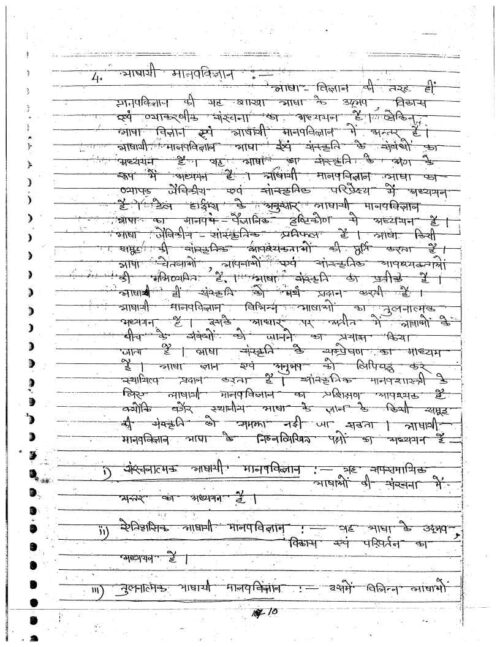 4. भाषायी मानवविज्ञान :—
भाषा-विज्ञान की तरह हीं
मानवविज्ञान की यह शाखा भाषा के उद्भव, विकास
एवं व्याकरणीक संरचना का अध्ययन है। लेकिन,
भाषा विज्ञान एवं भाषायी मानवविज्ञान में अन्तर है।
भाषायी मानवविज्ञान भाषा एवं संस्कृति के संबंधों का
अध्ययन है। यह भाषा का संस्कृति के अंग के
रूप में अध्ययन है। भाषायी मानवविज्ञान भाषा का
व्यापक जैविकीय एवं सांस्कृतिक परिप्रेक्ष्य में अध्ययन
है। डेल हाईम्स के अनुसार भाषायी मानवविज्ञान
भाषा का मानव वैज्ञानिक दृष्टिकोण से अध्ययन है।
भाषा जैविकीय-सांस्कृतिक प्रतिफल है। भाषा किसी
समूह की सांस्कृतिक आवश्यकताओं की पूर्ति करता है
भाषा चेतनाओं, भावनाओं एवं सांस्कृतिक आवश्यकताओं
की अभिव्यक्ति है, भाषा संस्कृति का प्रतीक है।
भाषा ही संस्कृति को अर्थ प्रदान करती है।
भाषायी मानवविज्ञान विभिन्न भाषाओं का तुलनात्मक
अध्ययन है। इसके आधार पर अतीत में भाषाओं के
बीच के संबंधों को जानने का प्रयास किया
जाता है। भाषा संस्कृति के सम्प्रेषण का माध्यम
है। भाषा ज्ञान एवं अनुभव को लिपिबद्ध कर
स्थायित्व प्रदान करता है। सांस्कृतिक मानवशास्त्री के
लिए भाषायी मानवविज्ञान का प्रशिक्षण आवश्यक है
क्योंकि बगैर स्थानीय भाषा के ज्ञान के किसी समूह
की संस्कृति को समझा नहीं जा सकता। भाषायी
मानवविज्ञान भाषा के निम्नलिखित पक्षों का अध्ययन है—
i) संरचनात्मक भाषायी मानवविज्ञान :— यह समसामयिक
भाषाओं की संरचना में
अन्तर का अध्ययन है।
ii) ऐतिहासिक भाषायी मानवविज्ञान :— यह भाषा के उद्भव,
विकास एवं परिवर्तन का
अध्ययन है।
iii) तुलनात्मक भाषायी मानवविज्ञान :— इसमें विभिन्न भाषाओं
10